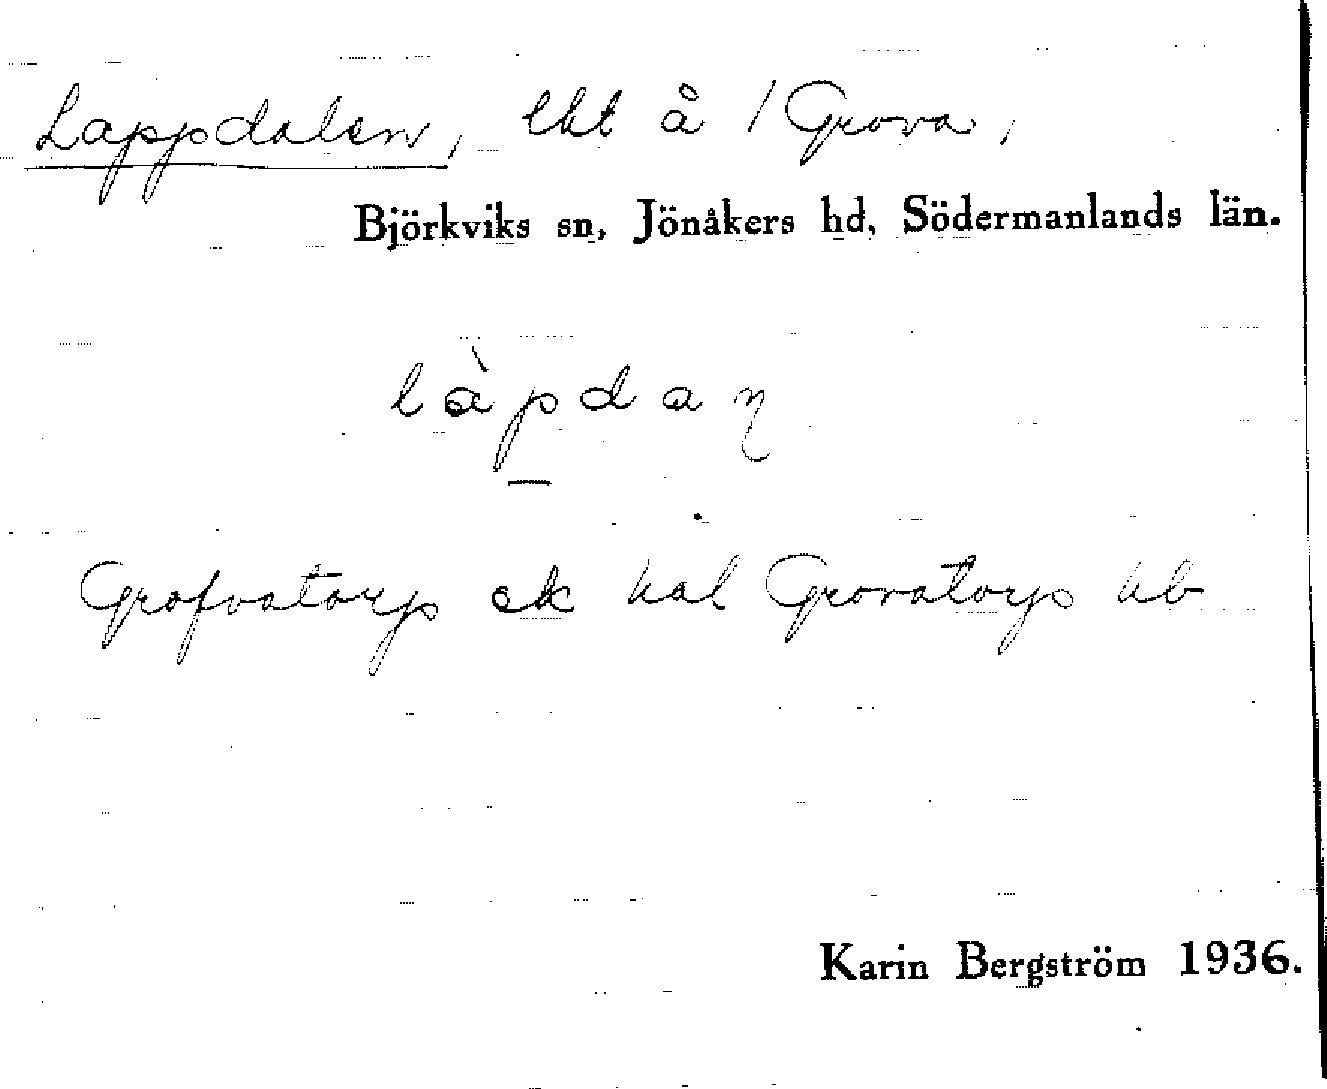 Lappdalen, lht å / Grova,
Björkviks sn, Jönåkers hd, Södermanlands län.
làpdaɳ
Grofvatorp ek hal Grovatorp hb
Karin Bergström 1936.